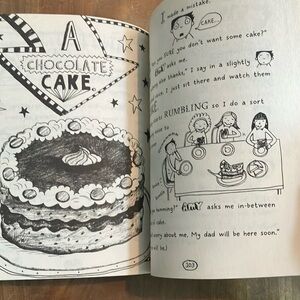 A
CHOCOLATE
CAKE.
I made a mistake.
CAKE...
you don't want some cake?"
asks me.
thanks," I say in a slightly
I just sit there and watch them
RUMBLING so I do a sort
humming?" asks me in-between
worry about me. My dad will be here soon."
will be.)
203